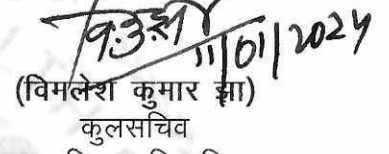 11/01/2024
(विमलेश कुमार झा)
कुलसचिव